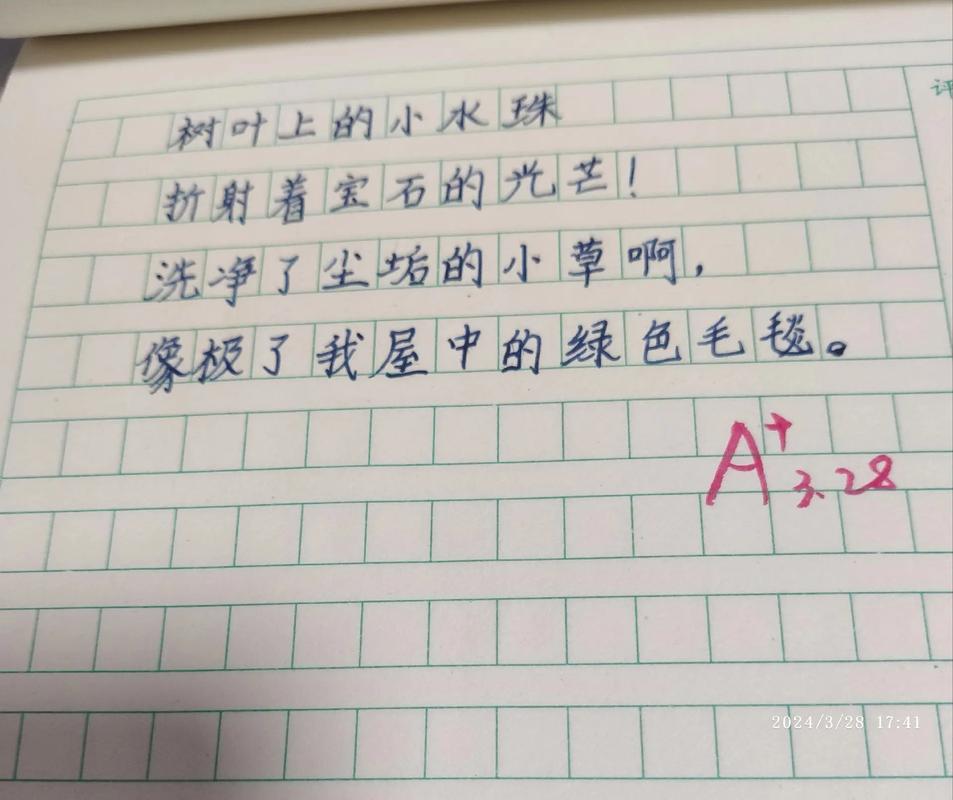 评
树叶上的小水珠
折射着宝石的光芒！
洗净了尘垢的小草啊，
像极了我屋中的绿色毛毯。
A+
3.28
2024/3/28 17:41